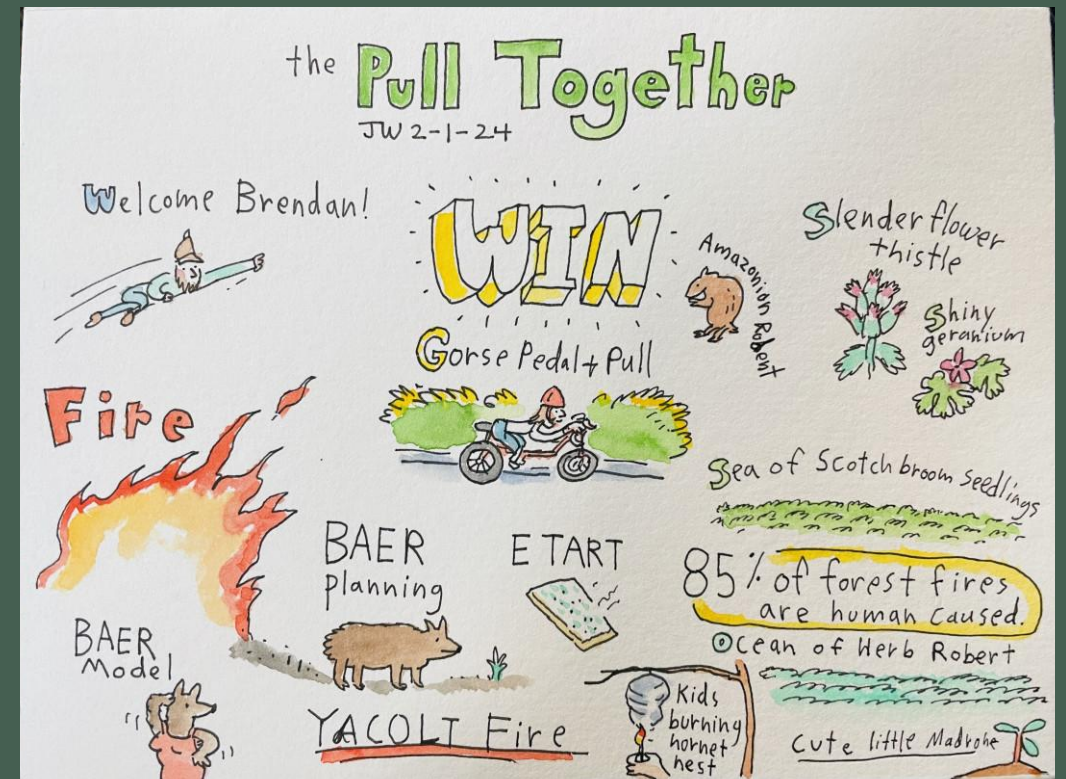 the Pull Together
JW 2-1-24
Welcome Brendan!
WIN
Amazonian Robert
Slender flower
thistle
Shiny
geranium
Gorse Pedal + Pull
Fire
Sea of Scotch broom Seedlings
BAER
planning
E TART
85% of forest fires
are human caused.
Ocean of Herb Robert
BAER
Model
YACOLT Fire
Kids
burning
hornet
nest
Cute little Madrone